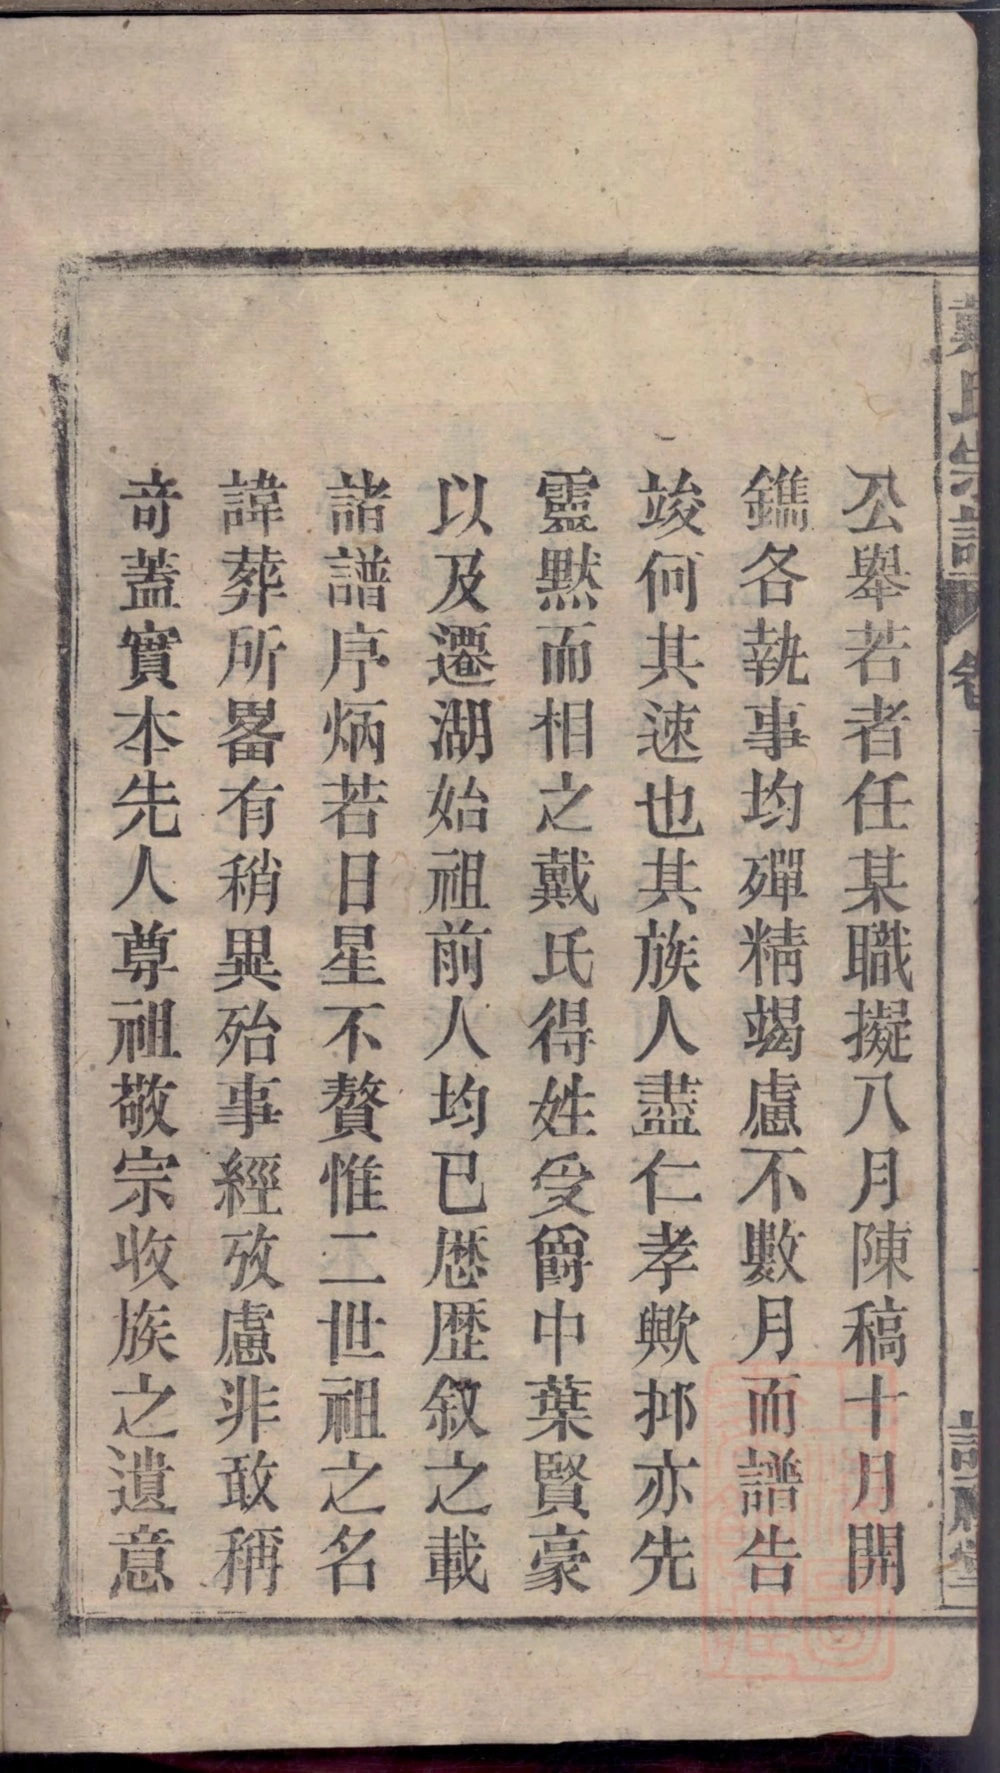 戴氏宗譜 卷
公舉若者任某職擬八月陳稿十月開
鐫各執事均殫精竭慮不數月而譜告
竣何其速也其族人盡仁孝歟抑亦先
靈默而相之戴氏得姓受爵中葉賢豪
以及遷湖始祖前人均已歷歷叙之載
諸譜序炳若日星不贅惟二世祖之名
諱葬所畧有稍異殆事經攷慮非敢稱
竒蓋實本先人尊祖敬宗收族之遺意